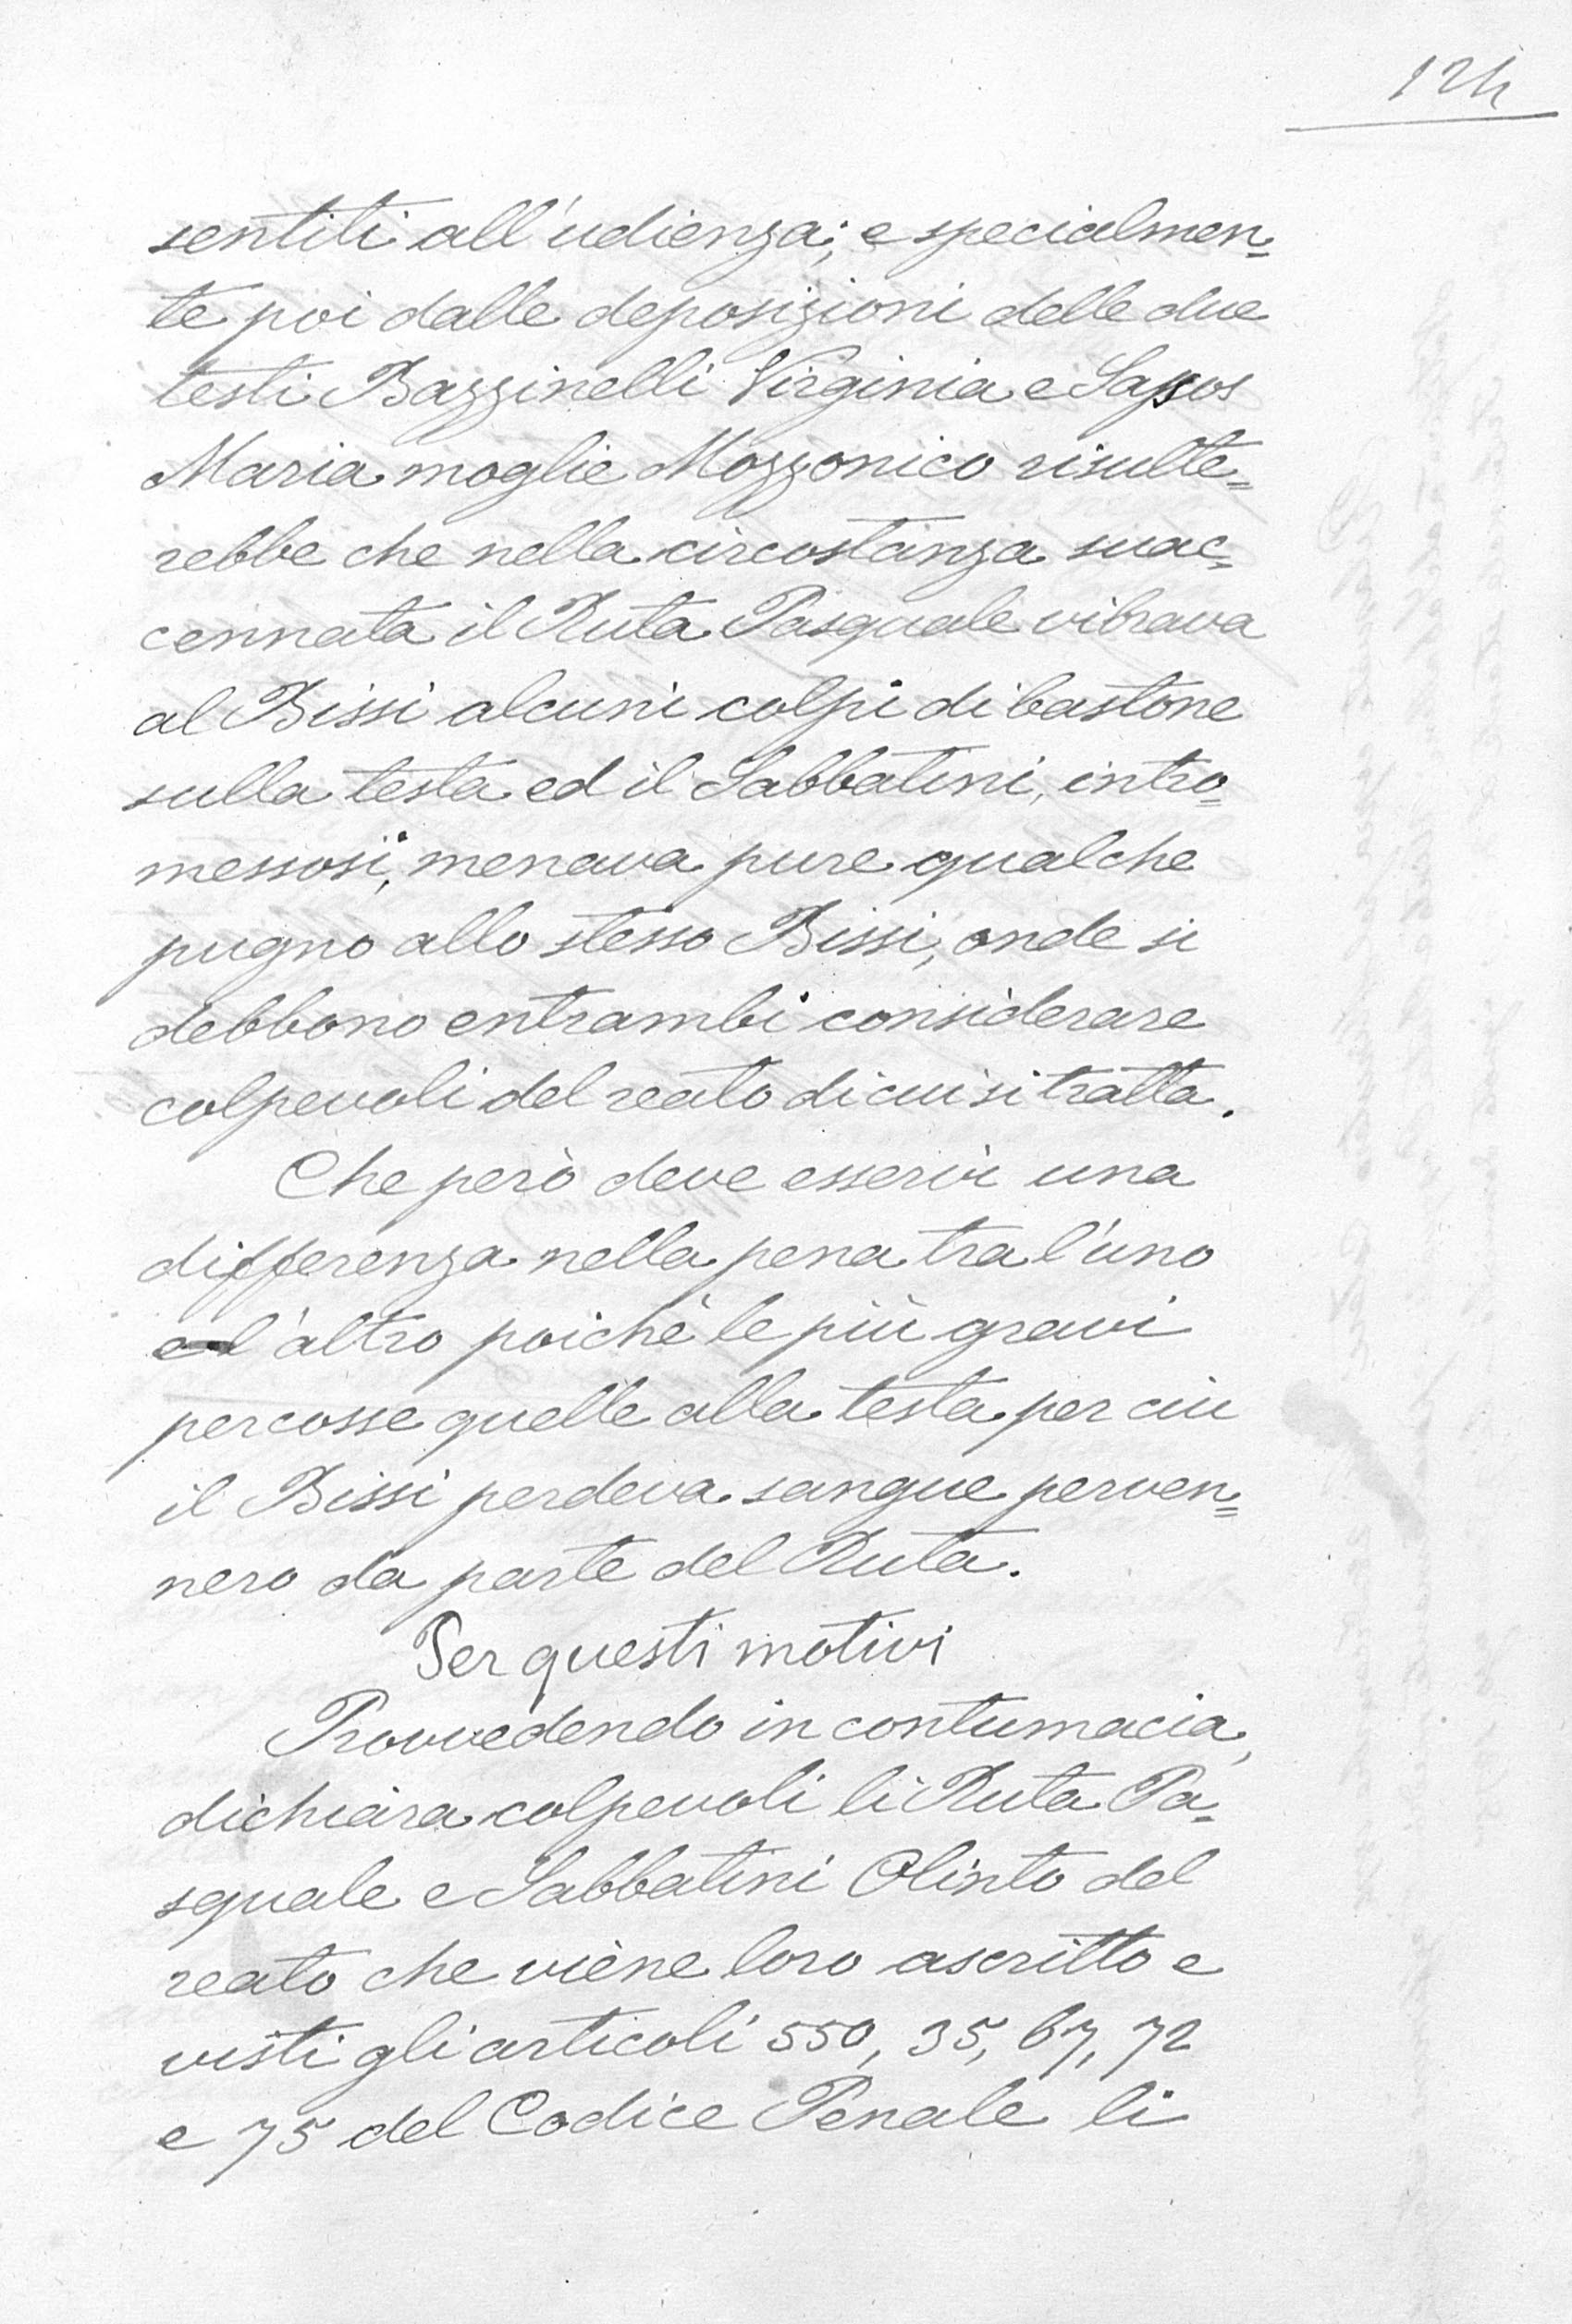 124
sentiti all'udienza; e specialmen=
te poi dalle deposizioni delle due
testi Bazzinelli Virginia e
Maria moglie Mozzonico risulte=
rebbe che nella circostanza suac=
cennata il Ruta Pasquale vibrava
al Bissi alcuni colpi di bastone
sulla testa ed il Sabbatini, intro=
messosi, menava pure qualche
pugno allo stesso Bissi, onde si
debbono entrambi considerare
colpevoli del reato di cui si tratta.
Che però deve esservi una
differenza nella pena tra l'uno
e l'altro poichè le più gravi
percosse quelle alla testa per cui
il Bissi perdeva sangue perven=
nero da parte del Ruta.
Per questi motivi
Provvedendo in contumacia,
dichiara colpevoli li Ruta Pa=
squale e Sabbatini Olinto del
reato che viene loro ascritto e
visti gli articoli 550, 35, 67, 72
e 75 del Codice Penale li